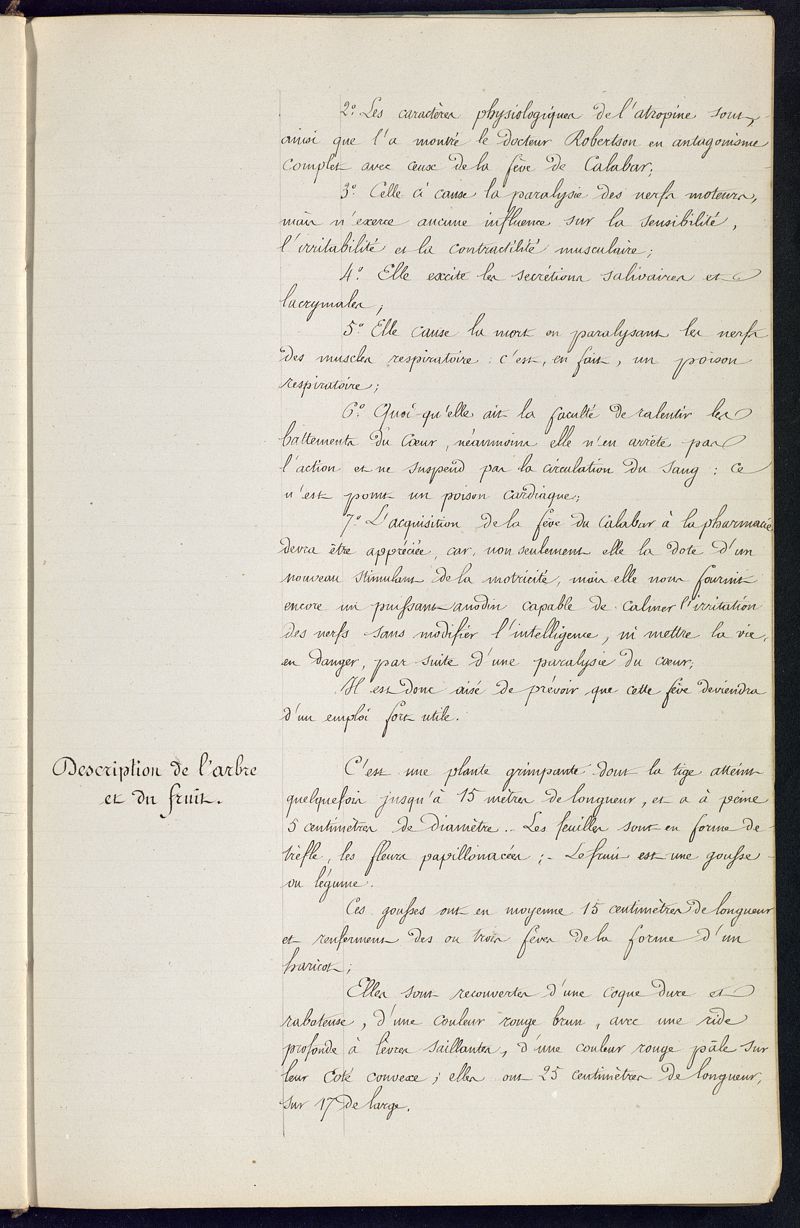 2° Les caractères physiologiques de l'atropine sont,
ainsi que l'a montré le docteur Robertson en antagonisme
complet avec ceux de la fève de Calabar;
3° Celle ci cause la paralysie des nerfs moteurs,
mais n'exerce aucune influence sur la sensibilité,
l'irritabilité et la contractilité musculaire;
4° Elle excite les secrétions salivaires et
lacrymales;
5° Elle cause la mort en paralysant les nerfs
des muscles respiratoire : c'est, en fait, un poison
respiratoire;
6° Quoi-qu'elle ait la faculté de ralentir les
battements du cœur, néanmoins elle n'en arrête pas
l'action et ne suspend pas la circulation du sang : ce
n'est point un poison cardiaque;
7° L'acquisition de la fève du Calabar à la pharmacie
devra être appréciée, car, non seulement elle la dote d'un
nouveau stimulant de la motricité, mais elle nous fournit
encore un puissant anodin capable de calmer l'irritation
des nerfs sans modifier l'intelligence, ni mettre la vie,
en danger, par suite d'une paralysie du cœur;
Il est donc aisé de prévoir que cette fève deviendra
d'un emploi fort utile.
Description de l'arbre
et du fruit.
C'est une plante grimpante dont la tige atteint
quelquefois jusqu'à 15 mètres de longueur, et a à peine
5 centimètres de diamètre.. Les feuilles sont en forme de
trèfle, les fleurs papillonacées; - Le fruit est une gousse
ou légume.
Ces gousses ont en moyenne 15 centimètres de longueur
et renferment des ou trois fèves de la forme d'un
haricot;
Elles sont recouvertes d'une coque dure et
raboteuse, d'une couleur rouge brun, avec une ride
profonde à lèvres saillantes, d'une couleur rouge pâle sur
leur coté convexe; elles ont 25 centimètres de longueur,
sur 17 de large.